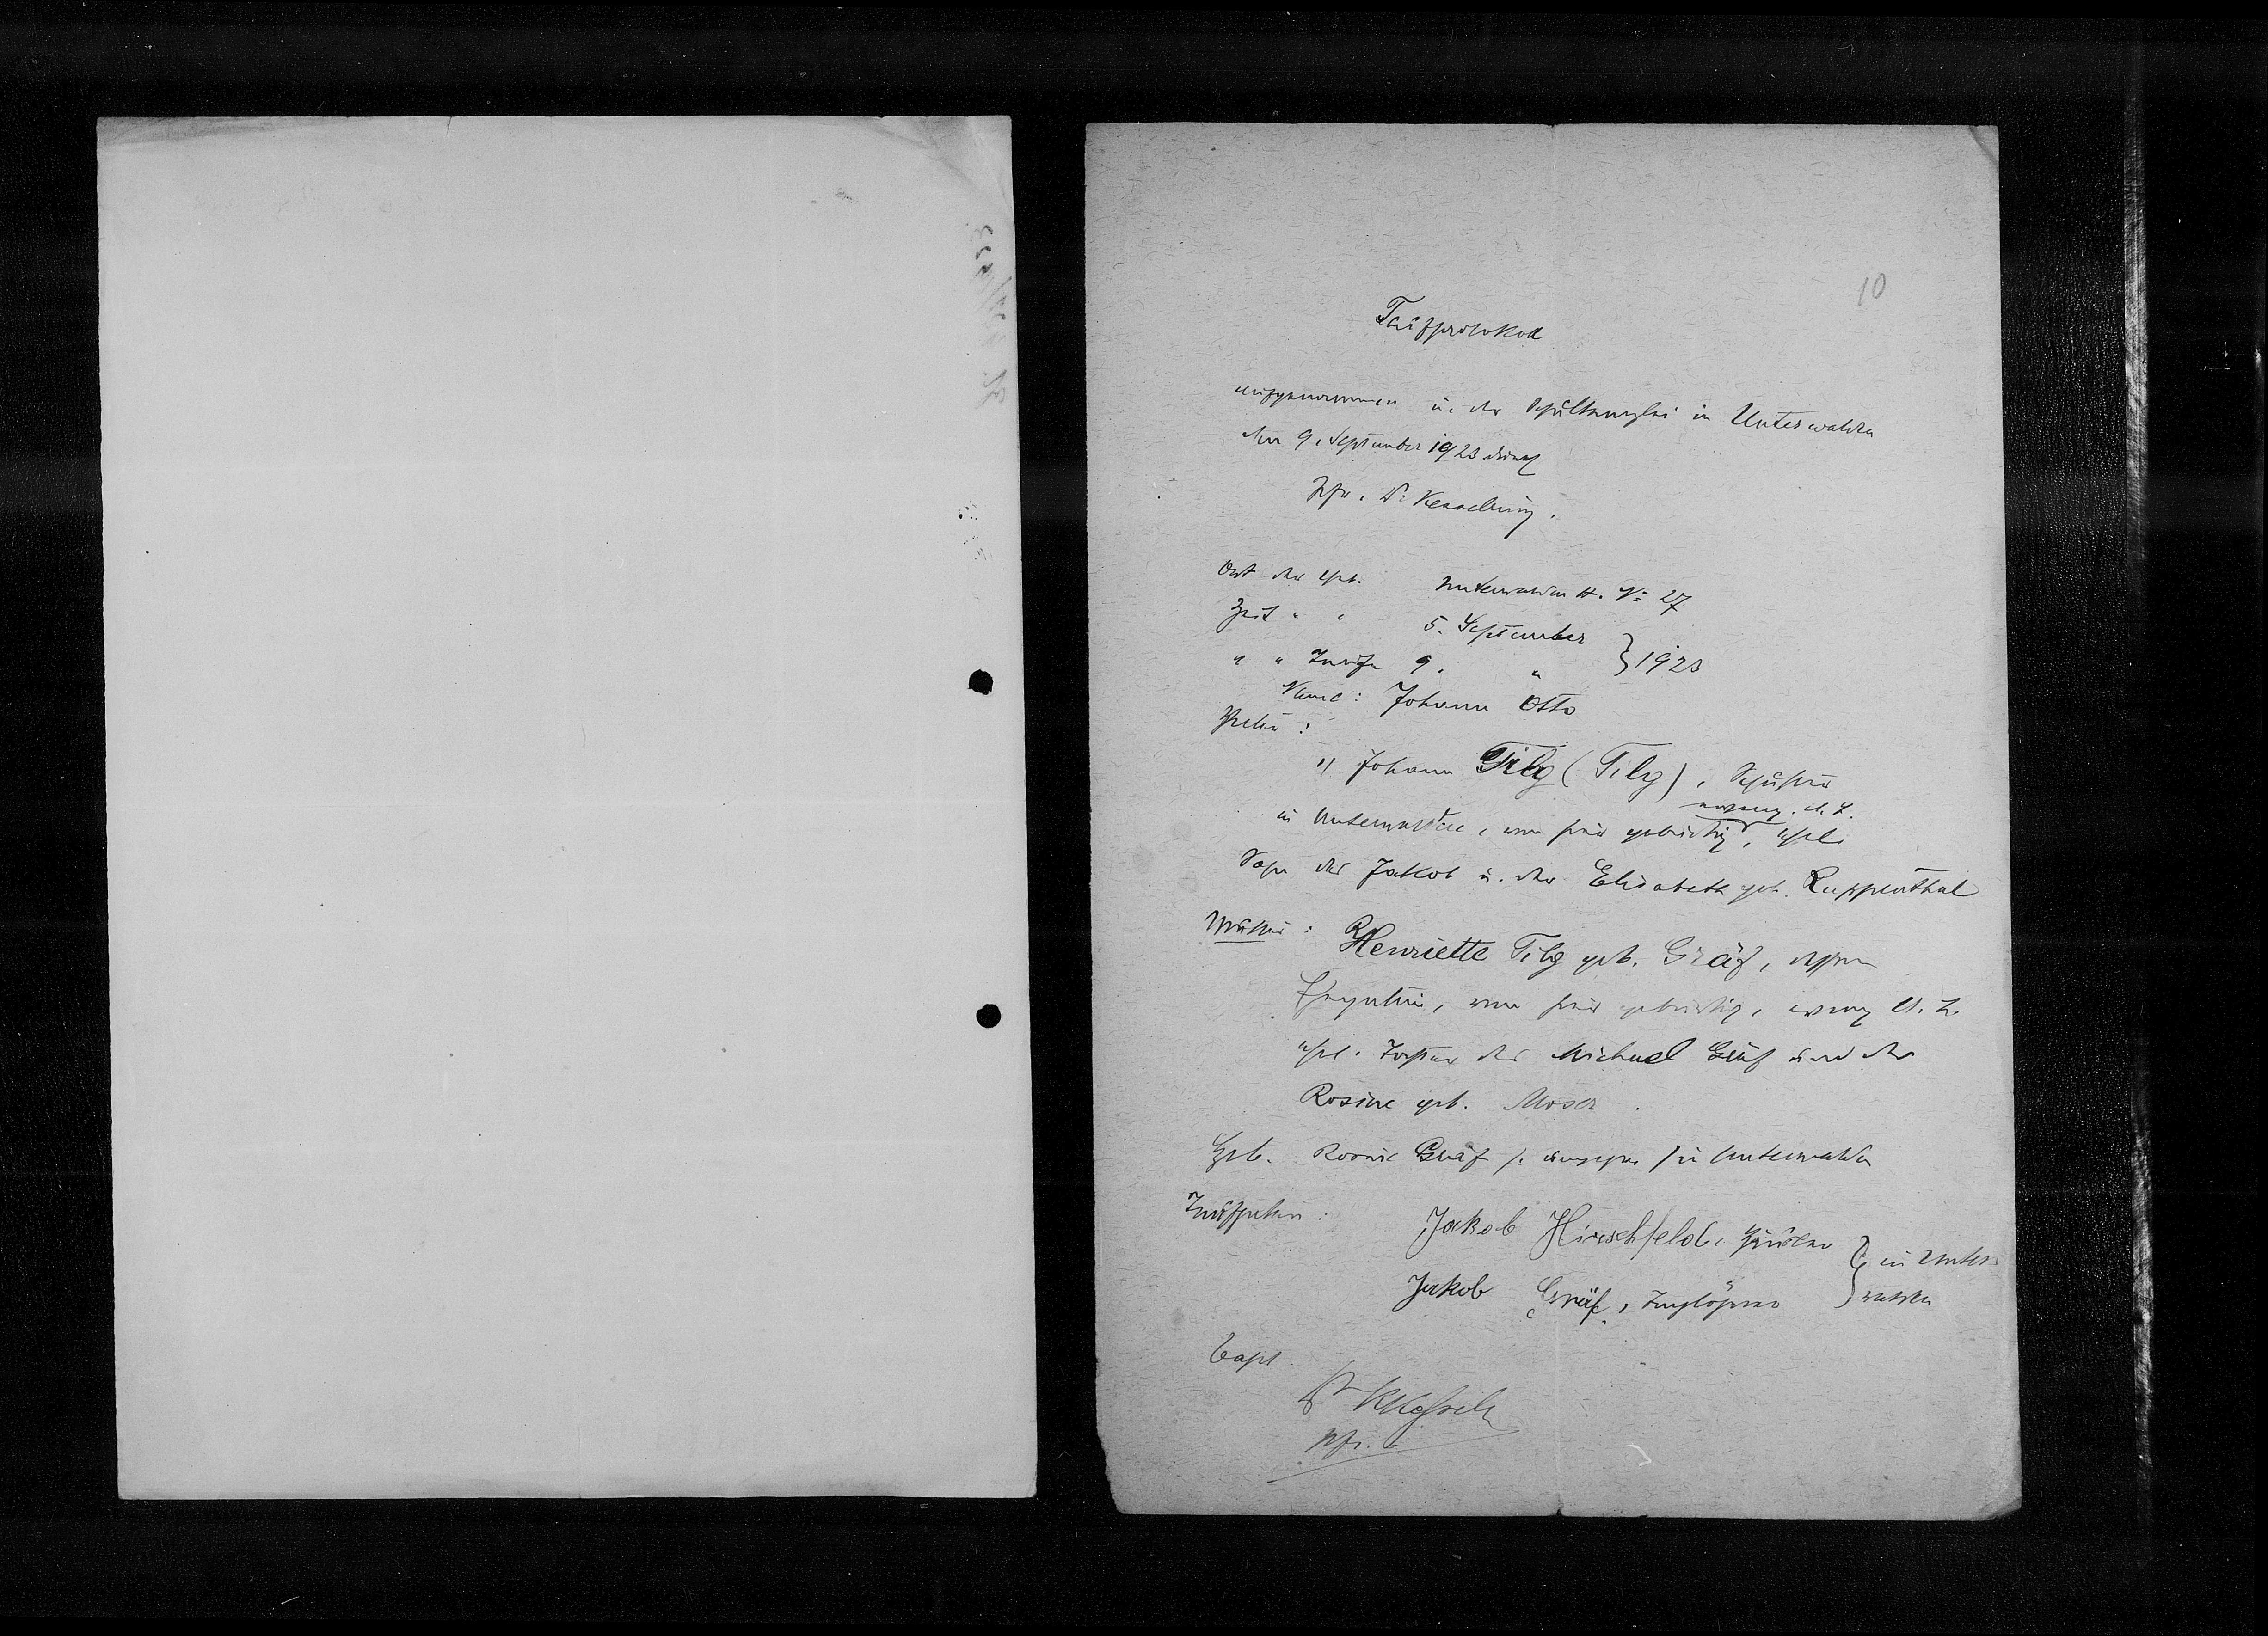 10
Taufprotokoll
aufgenommen in der Schulkanzlei in Unterwalden
den 9. September 1923 durch
Pfr. Dr. Kesselring.
Ort der Geb. Unterwalden H. № 27
Zeit " " 5. September
" " Taufe 9. " } 1923
Name: Johann Otto
Vater:
Johann Tilg (Tilg), Schuster
evang. A. B.
in Unterwalden, von hier gebürtig, ehel.
Sohn des Jakob u. der Elisabeth geb. Ruppenthal
Mutter: Henriette Tilg geb. Gräf, dessen
Ehegattin, von hier gebürtig, evang A. B.
ehel. Tochter des Michael Gräf und der
Rosine geb. Moser.
Heb. Rosine Gräf in Unterwalden
Taufpaten:
Jakob Hirschfeld,
Jakob Gräf, Taglöhner } in Unter-
walden
Pfr.